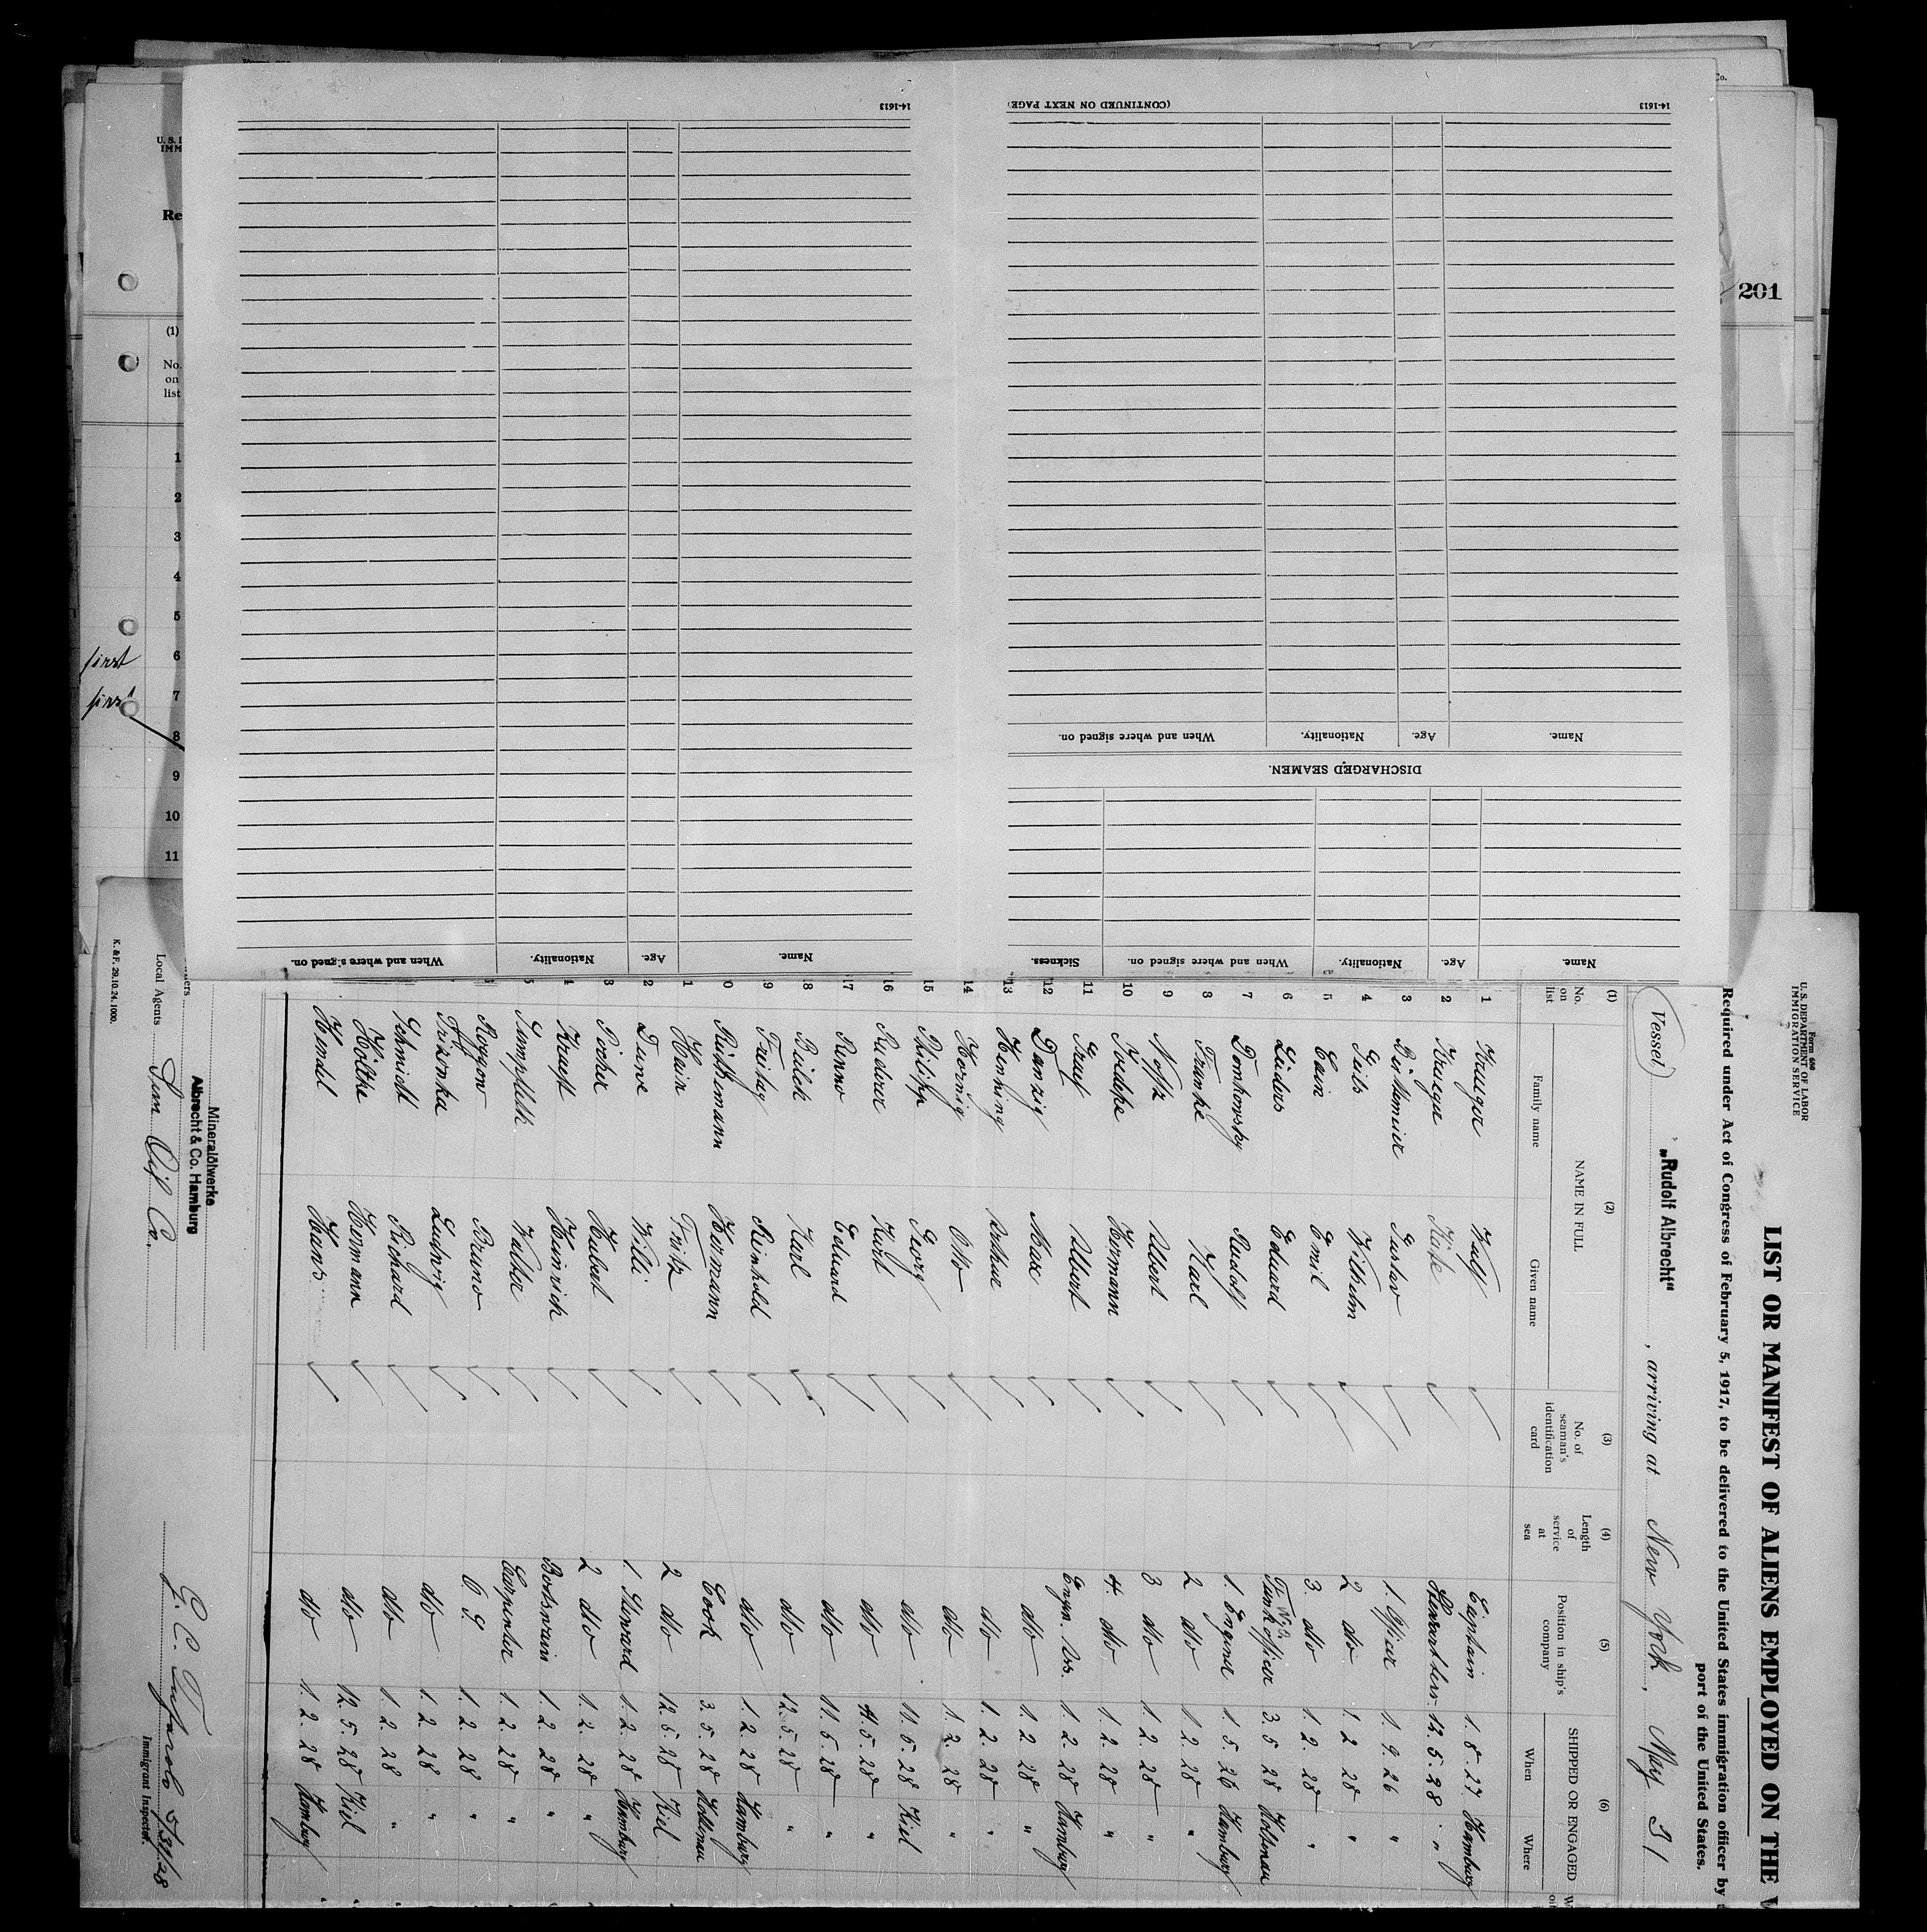 14-1613
(CONTINUED ON NEXT PAGE)
14-1613
Co.
201
U. S. D
IMM
Re
(1)
No.
on
list
1
2
3
4
5
first 6
first 7
8
9
10
11
When and where signed on. Nationality. Age. Name.
DISCHARGED SEAMEN.
When and where signed on. Nationality. Age. Name.
Sickness. When and where signed on. Nationality. Age. Name.
Form 680
U. S. DEPARTMENT OF LABOR
IMMIGRATION SERVICE
LIST OR MANIFEST OF ALIENS EMPLOYED ON THE V
Required under Act of Congress of February 5, 1917, to be delivered to the United States immigration officer by
port of the United States.
Vessel „Rudolf Albrecht“, arriving at New York, May 31
(1) (2) (3) (4) (5) (6)
No. on list
NAME IN FULL
Family name Given name
No. of seaman's identification card
Length of service at sea
Position in ship's company
SHIPPED OR ENGAGED
When Where
1 Krueger Captain 1. 8. 27 Hamburg
2 Krueger Käte 12. 5. 28 "
3 Gustav 1. Officer 1. 9. 26 "
4 Wilhelm 2 do 1. 2 28 "
5 Cain Emil 3. do 1. 2. 28 "
6 Lüders Eduard Tank officer 3. 5 28 Holtenau
7 Domkowsky Rudolf 1. Engener 1. 5. 26 Hamburg
8 Franke Karl 2 do 1. 2 28 "
9 Noffz Albert 3 do 1. 2. 28 "
10 Hermann 4. do 1. 2. 28 "
11 Graf Albert Engn. Ass. 1. 2. 28 Hamburg
12 Danzig Max do 1. 2 28 "
13 Henning Arthur do 1. 2. 28 "
14 Hornig Otto do 1. 2. 28 "
15 Philipp Georg do 11. 5. 28 Kiel
16 Ruderer Kurt do 11. 5. 28 "
17 Renno Eduard do 11. 5. 28 "
18 Bülck Karl do 12. 5. 28 "
9 Freitag Reinhold do 1. 2. 28 Hamburg
0 Rüthemann Hermann Cook 3. 5. 28 Holtenau
1 Hain Fritz 2 do 12. 5. 28 Kiel
2 Duwe Willi 1. Steward 1. 2. 28 Hamburg
3 Pocher Hubert 2 do 1. 2. 28 "
4 Kraeft Heinrich Bootswain 1. 2 28 "
5 Walter Carpenter 1. 2 28 "
Roggow Bruno 1. 2. 28 "
Ludwig do 1. 2. 28 "
Schmidt Richard do 1. 2. 28 "
Hölthe Hermann do 12. 5. 28 Kiel
Hendl Hans do 1. 2. 28 Hamburg
Mineralölwerke
Albrecht & Co. Hamburg
Local Agents Sun Oil Co.
5/31/28
Immigrant Inspector.
K. & F. 29.10.24. 1000.